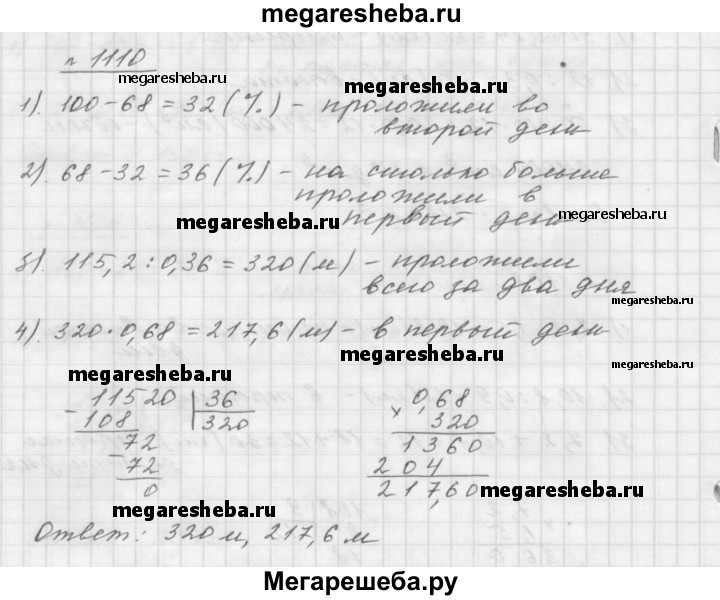 megaresheba.ru
п 1110
megaresheba.ru
megaresheba.ru
1). 100 - 68 = 32 (%) - проложили во
второй день
2). 68 - 32 = 36 (%) - на сколько больше
проложили в
megaresheba.ru
первый день
megaresheba.ru
3). 115,2 : 0,36 = 320 (м) - проложили
всего за два дня
megaresheba.ru
4). 320 · 0,68 = 217,6 (м) - в первый день
megaresheba.ru
megaresheba.ru
- 11520 | 36
108 320
- 72
72
0
× 0,68
320
1360
204
217,60
megaresheba.ru
megaresheba.ru
Ответ: 320 м, 217,6 м
Мегарешеба.ру